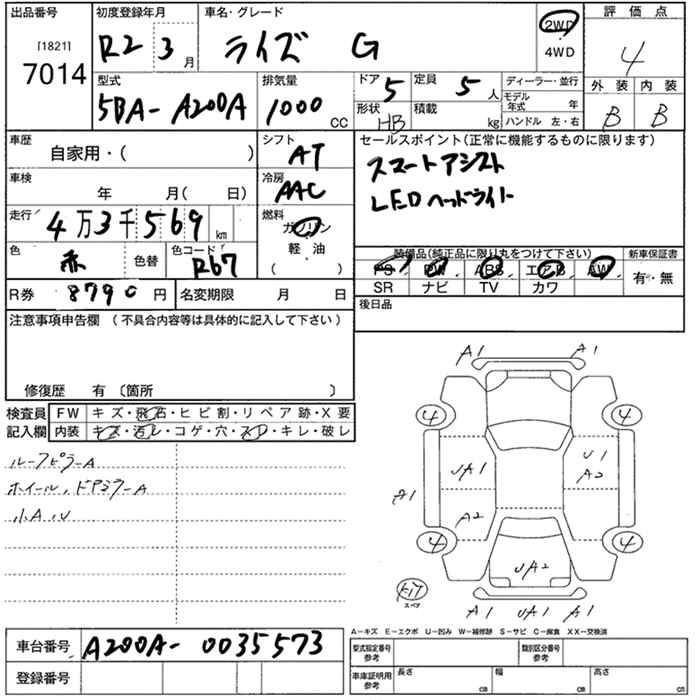 出品番号 初度登録年月 車名・グレード 評価点
[1821]
7014
R2 3月 ライズ G 2WD 4WD 4
型式 排気量 ドア 5 定員 5人 ディーラー・並行 外装 内装
5BA-A200A 1000cc 形状 HB 積載 kg モデル年式 年 B B
ハンドル 左・右
車歴 自家用・( ) シフト AT セールスポイント(正常に機能するものに限ります)
スマートアシスト
車検 年 月( 日) 冷房 AAC LEDヘッドライト
走行 4万3千569km 燃料 ガソリン
軽・油
( )
色 赤 色替 色コード R67 装備品(純正品に限り丸をつけて下さい) 新車保証書
PS PW ABS エアB AW 有・無
SR ナビ TV カワ
R券 8790円 名変期限 月 日 後日品
注意事項申告欄 (不具合内容等は具体的に記入して下さい)
修復歴 有 〔箇所 〕
検査員 FW キズ・飛石・ヒビ割・リペア跡・X要
記入欄 内装 キズ・汚レ・コゲ・穴・スレ・キレ・破レ
ルーフピラーA
ホイール、ドアミラーA
小A、U
A1 A1
4 4
UA1 U1
A2
A1 A2
4 4
UA2
KIT
スペア
A1 UA1 A1
A-キズ E-エクボ U-凹み W-補修跡 S-サビ C-腐食 XX-交換済
車台番号 A200A-0035573 型式指定番号 参考 類別区分番号 参考
登録番号 車庫証明用 参考 長さ cm 幅 cm 高さ cm